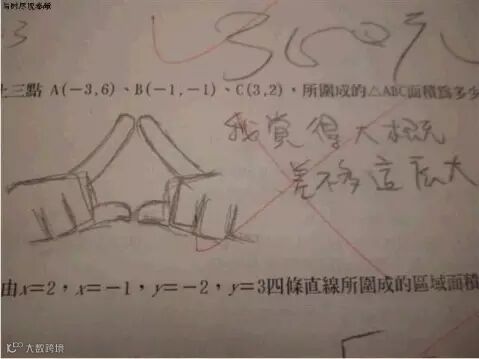 与时尽现卷娱
上三點 A(−3,6)、B(−1,−1)、C(3,2)，所圍成的△ABC面積爲多少
我覺得大概
差不多這麼大
由x=2，x=−1，y=−2，y=3四條直線所圍成的區域面積
大数跨境